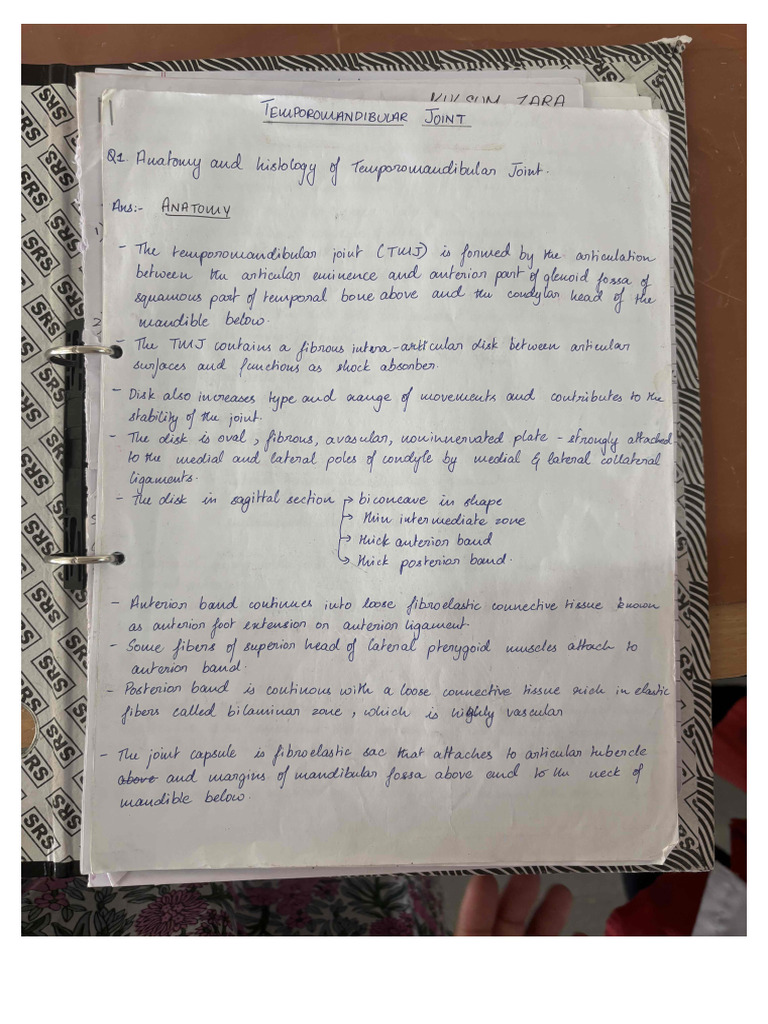 KULSUM ZARA
TEMPOROMANDIBULAR JOINT
Q1. Anatomy and histology of Temporomandibular Joint.
Ans:- ANATOMY
- The temporomandibular joint (TMJ) is formed by the articulation
between the articular eminence and anterior part of glenoid fossa of
squamous part of temporal bone above and the condylar head of the
mandible below.
- The TMJ contains a fibrous intra-articular disk between articular
surfaces and functions as shock absorber.
- Disk also increases type and range of movements and contributes to the
stability of the joint.
- The disk is oval, fibrous, avascular, noninnervated plate - strongly attached
to the medial and lateral poles of condyle by medial & lateral collateral
ligaments.
- The disk in sagittal section → biconeave in shape
→ thin intermediate zone
→ thick anterior band
→ thick posterior band.
- Anterior band continues into loose fibroelastic connective tissue known
as anterior foot extension on anterior ligament.
- Some fibers of superior head of lateral pterygoid muscles attach to
anterior band.
- Posterior band is continous with a loose connective tissue rich in elastic
fibers called bilaminar zone, which is highly vascular
- The joint capsule is fibroelastic sac that attaches to articular tubercle
above and margins of mandibular fossa above and to the neck of
mandible below.
SRS
SRS
SRS
SRS
SRS
SRS
SRS
SRS
SRS